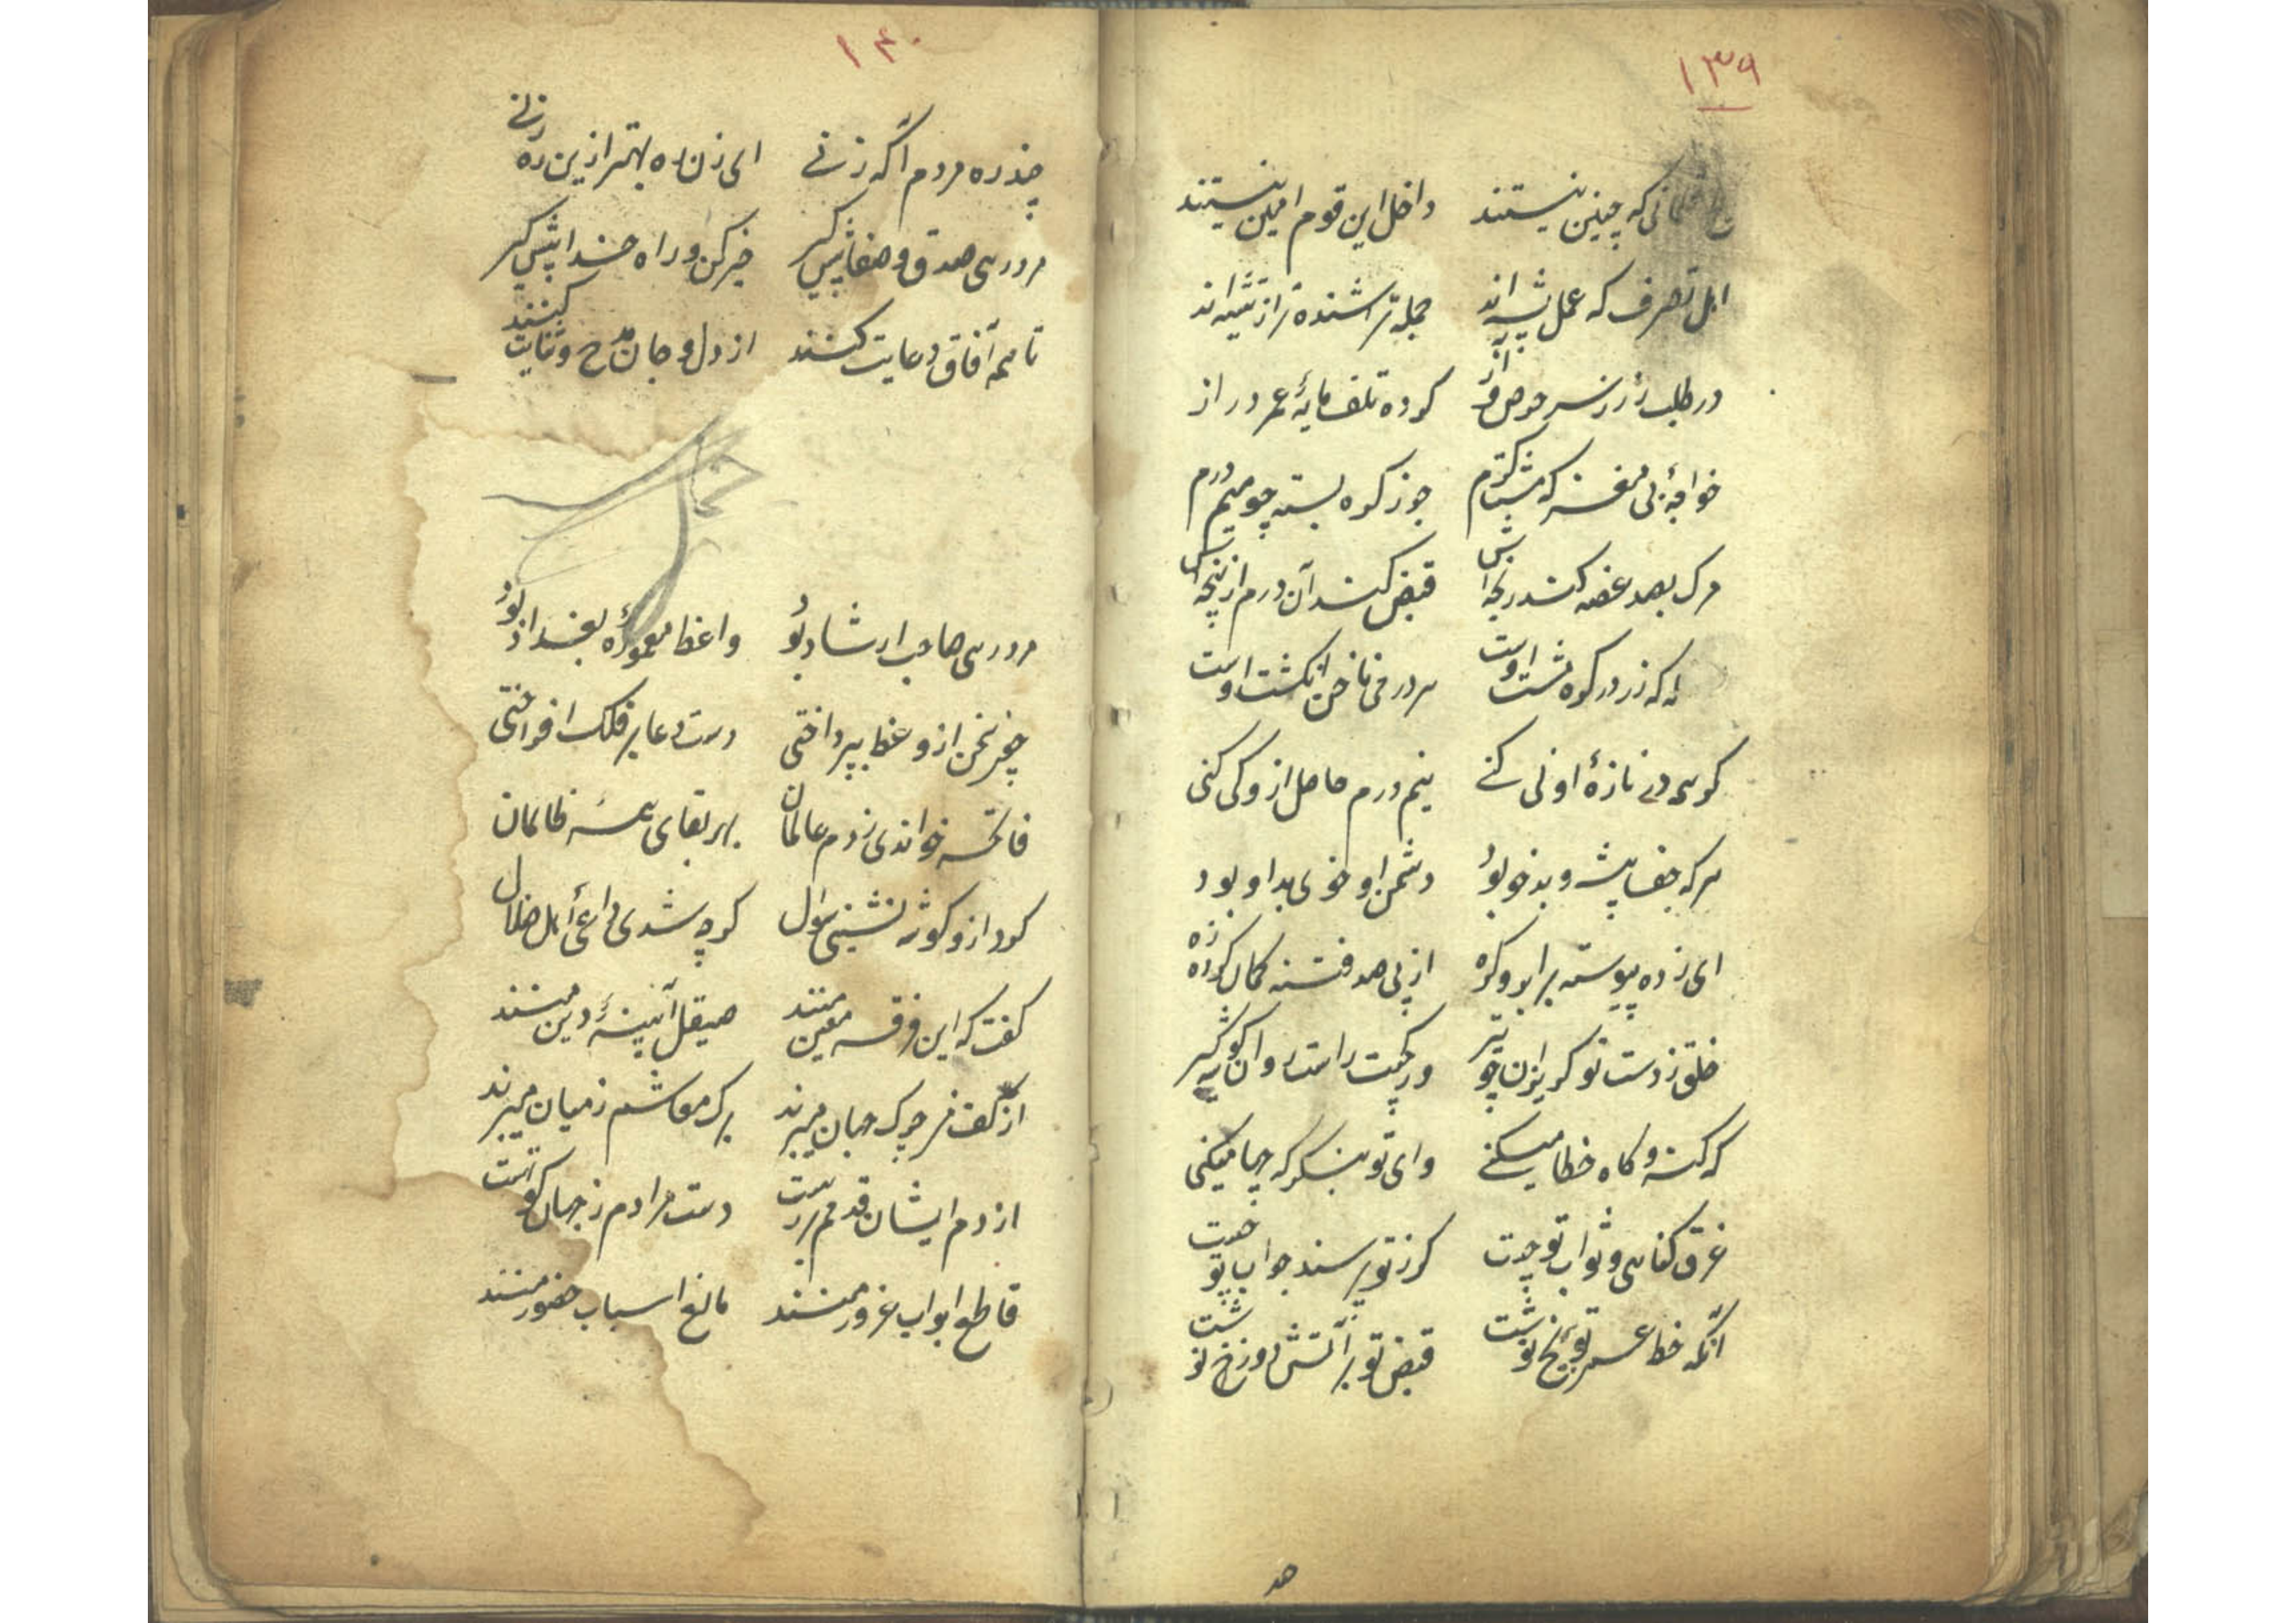 ۱۳۹
که چنین نیستند داخل این قوم امین نیستند
اهل تصرف که عمل پیشه‌اند جمله تراشنده‌تر از تیشه‌اند
در طلب زر ز سر حرص و آز کرده تلف مایهٔ عمر دراز
خواجهٔ بی مغز که شد محترم جوز گره بسته چو میم درم
مرک بصد غصه کند رنجه‌اش قبض کند آن درم از پنجه‌اش
که زر در گره مشت اوست سر درمی ناخن انگشت اوست
کر همه دم تازهٔ او نی کنی نیم درم حاصل ازو کی کنی
هر که جفا پیشه و بدخو بود دشمن او خوی بد او بود
ای زده پیوسته برابرو کره از پی صد فتنه کمان کرده زه
خلق ز دست تو کریزان چو تیر ور کجیت راست روان کوشه کیر
که کنه و کاه خطا میکنی وای تو بنکر که چها میکنی
غرق کناهی و ثواب تو چیست کر ز تو پرسند جواب تو چیست
آنکه خط عمر تو بر یخ نوشت قبض تو بر آتش دوزخ نوشت
هد
۱۴۰
چند ره مردم آکه زنی ای زن ره بهتر ازین ره زنی
مرد رهی صدق و صفا پیش کیر خیر کن و راه خدا پیش کیر
تا همه آفاق دعایت کنند از دل و جان مدح و ثنایت کنند
مرد رهی صاحب ارشاد بود واعظ معمورهٔ بغداد بود
چون سخن از وعظ بپرداختی دست دعا بر فلک افراختی
فاتحه خواندی ز دم عالمان بهر بقای همه ظالمان
کرد ازو کوشه نشینی سوال کز چه شدی داعی اهل ضلال
کفت که این فرقه معین منند صیقل آیینهٔ دین منند
از کف من چرک جهان میبرند برک معاشم ز میان میبرند
از دم ایشان قدمم بر رهست دست مرادم ز جهان کوتهست
قاطع ابواب غرور منند مانع اسباب حضور منند